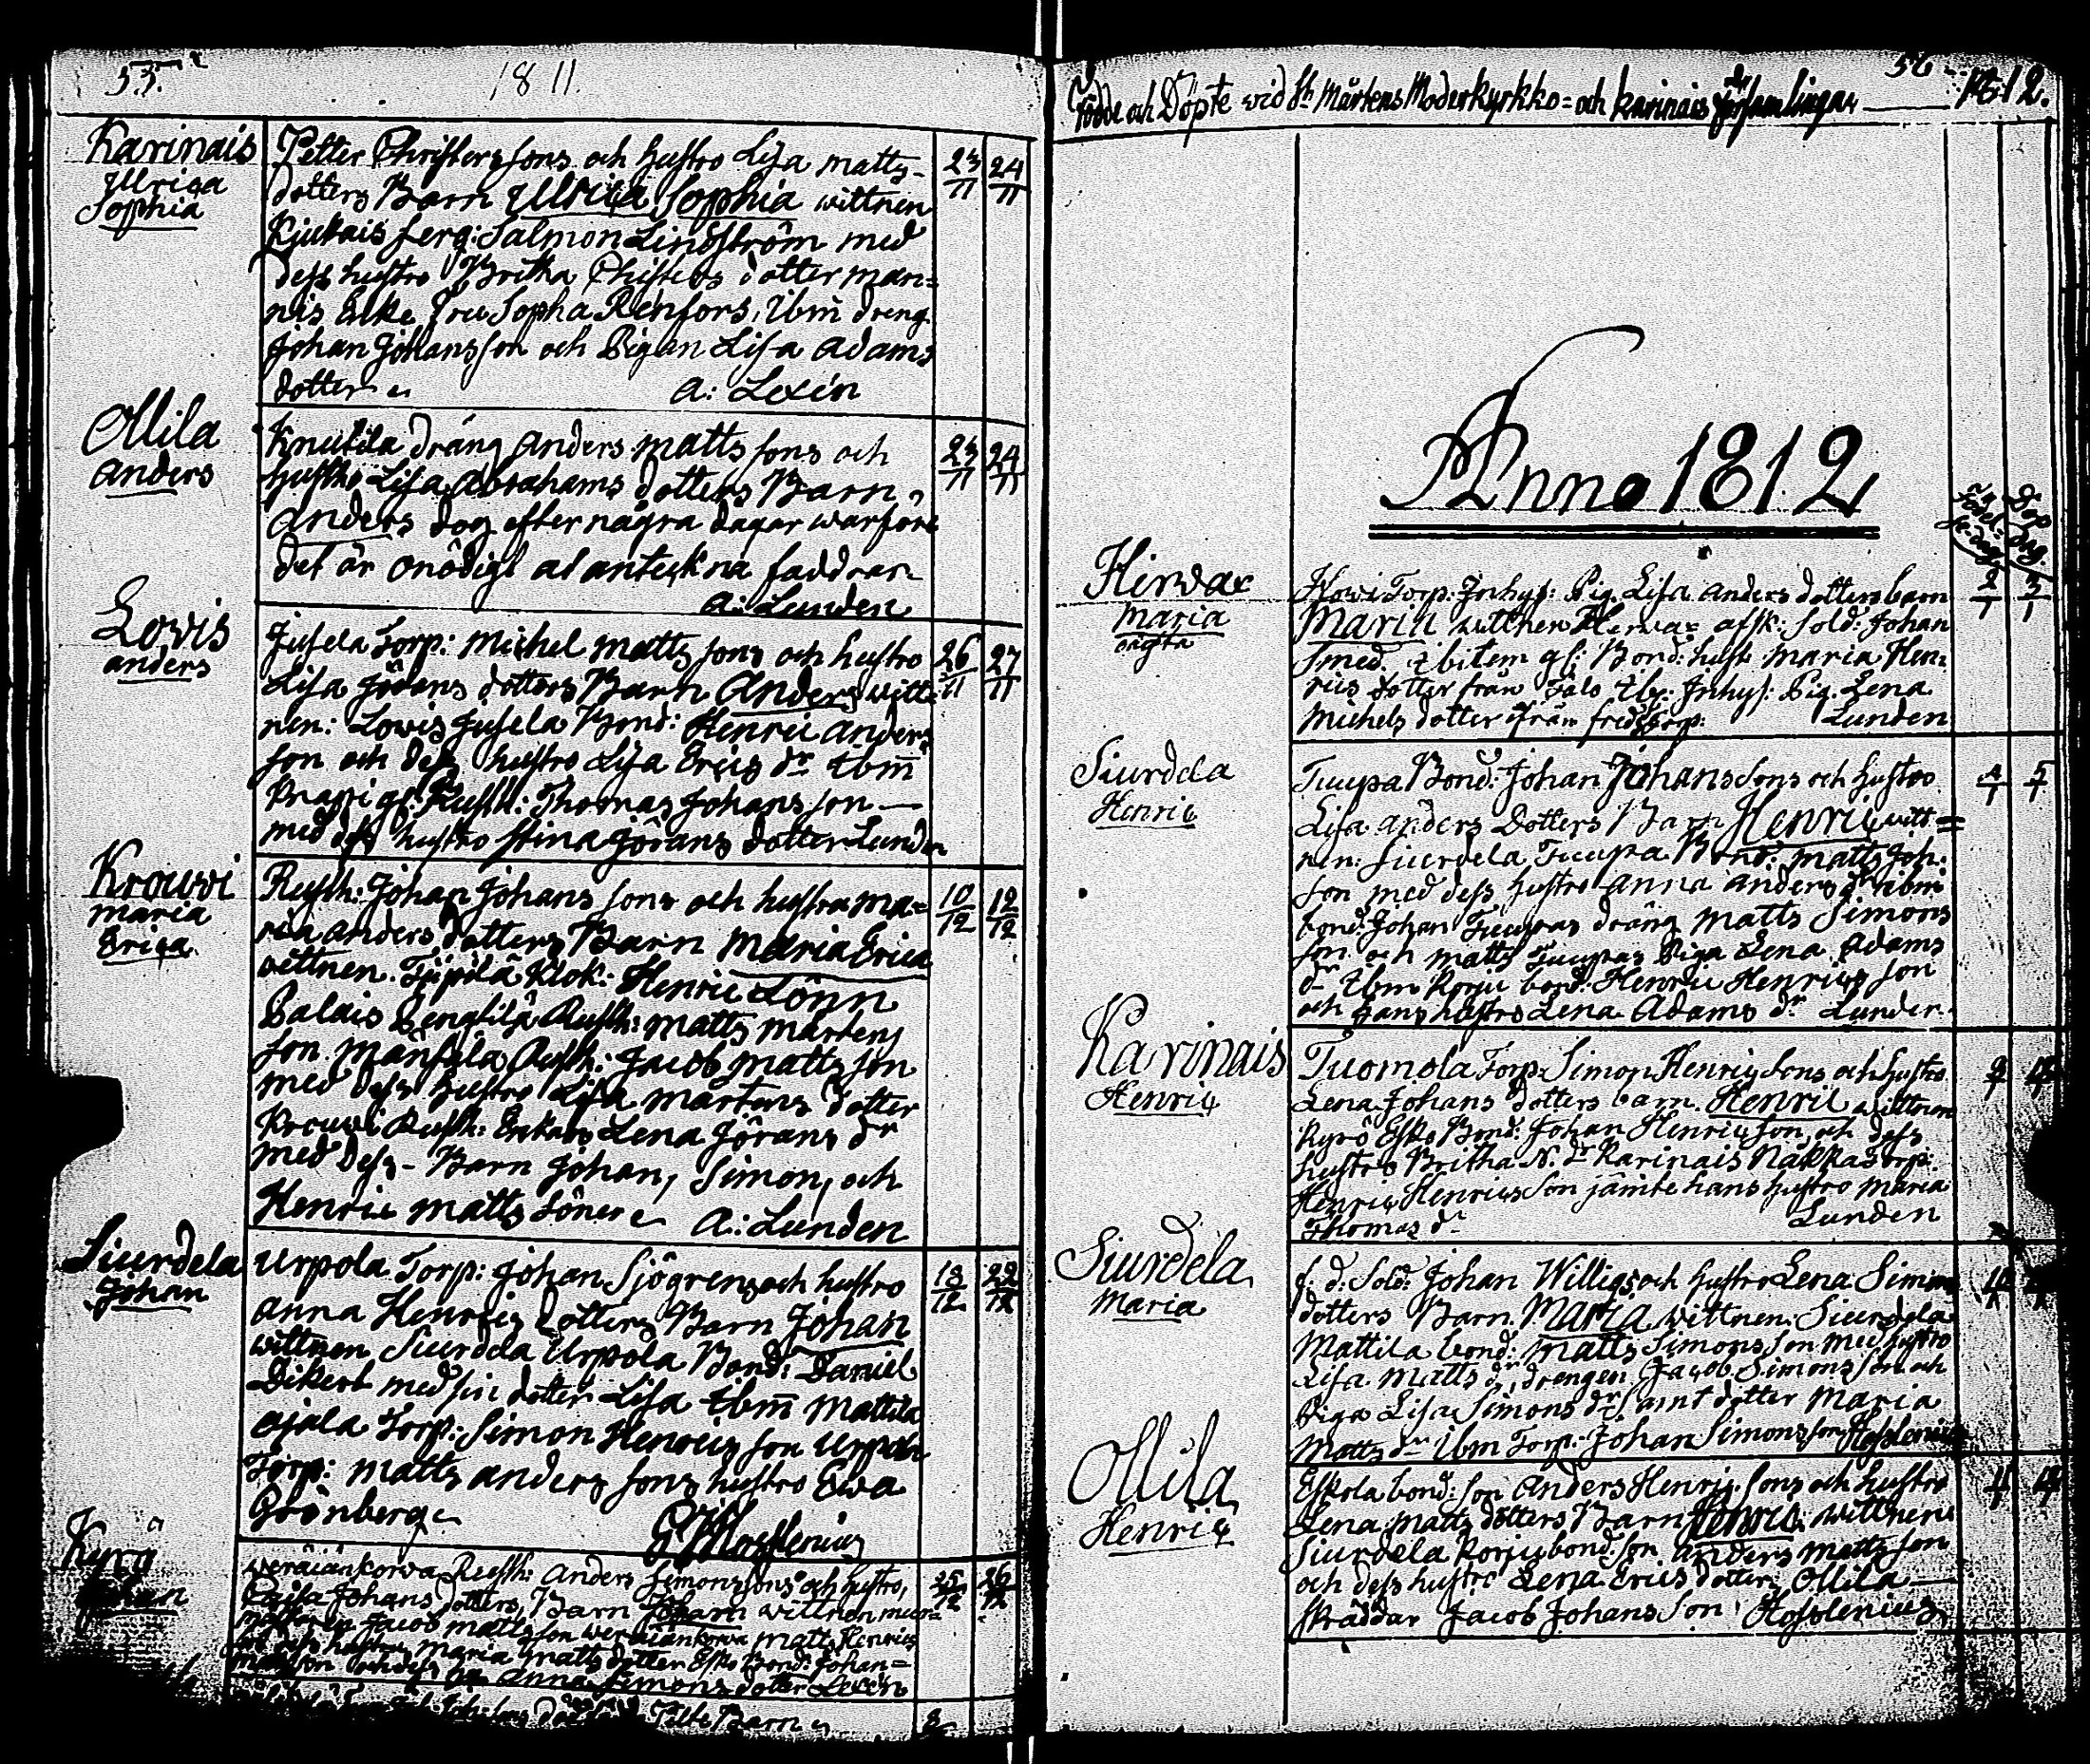 53.
1811.
Karinais
Ulrica
Sophia
Petter Christerssons och hustro Lisa Matts-
dotters Barn Ulrica Sophia wittnen
Kjukais ferg: Salmon Lindström med
dess hustro Britha Christers dotter man=
nis Enke fru Sopha Renfors, ibm dreng
Johan Johansson och Pigan Lisa Adams
dotter
A: Lexén
23/11 24/11
Ollila
Anders
Knutila dräng Anders Matts sons och
hustro Lisa Abrahams dotters Barn
Anders dog efter några dagar warföre
det är onödigt at anteckna faddrar
A: Lunden
23/11 24/11
Lowis
Anders
Jusela Torp: Michel Matts sons och hustro
Lisa Jörans dotters Barn Anders witt
nen: Lowis Jusela Bond: Henric Anders
son och dess hustro Lisa Erics dr ibm
Thomas Johans son —
med dess hustro Stina Jörans dotter Lunden
26/11 27/11
Krouwi
Maria
Erica
Rusth: Johan Johans sons och hustro Ma=
ria Anders dotters Barn Maria Erica
wittnen. Klok: Henric Lönn
Palais Rusth: Matts Mårtens
son Rusth: Jacob Matts son
med dess hustro Lisa Mårtens dotter
Krouwi Rusth: Enkan Lena Jörans dr
med dess - Barn Johan, Simon, och
Henric Matts söner A: Lunden
10/12 12/12
Siurdela
Johan
Urpola Torp: Johan Sjögrens och hustro
Anna Henrics dotters Barn Johan
wittnen Siurdela Urpola Bond: Daniel
Dikert med sin dotter Lisa ibm Mattila
ojala Torp: Simon Henrics son Urpola
Torp: Matts Anders sons hustro Ewa
Grönberg
Hosslenius
Kyrö
Johan
Rusth: Anders Simons sons och hustro,
Johans dotters, Barn Johan wittnen
Jacob Matts son Matts Henrics
hustro Maria Matts dotter Esko Bond: Johan=
Anna Simons dotter Lexén
25/12 26/12
Barn
56
1812.
Födde och Döpte wid St Mårtens Moderkyrkko= och Karinais församlingar
Anno 1812
Födel-
se-dag
Dop
dag.
Hirwas
Maria
oägta
Torp: Inhys: Pig. Lisa Anders dotters barn
Maria wittnen afsk: Sold: Johan
Smed. ibitem gl: Bond: hust: Maria Hen:
rics dotter från Inhys: Pig. Lena
Michels dotter ifrån Lunden
2/1 3/1
Siurdela
Henric
Tuupa Bond: Johan Johans Sons och hustro
Lisa Anders Dotters Barn Henric witt=
nen: Siurdela Tuupa Bond: Matts Joh.
son med dess hustro Anna Anders dr ibm
bond: Johan Tuupas dräng Matts Simons
son och Matts Tuupas Piga Lena Adams
dr Ibm Korju bond: Henric Henrics son
och hans hustro Lena Adams dr Lunden.
4/1 5/1
Karinais
Henric
Tuomola Torp: Simon Henrics sons och hustro
Lena Johans dotters barn. Henric wittnen
Kyrö Esko Bond: Johan Henrics son, och dess
hustro Britha N. dr Karinais Nakkas torp:
Henric Henrics son jämte hans hustro Maria
Thomas dr Lunden
Siurdela
Maria
f. d. Sold: Johan Willigs och hustro Lena Simons
dotters Barn. Maria wittnen. Siurdela
Mattila bond: Matts Simons son med hustro
Lisa Matts dr, drengen Jacob Simons son och
Piga Lisa Simons dr samt dotter Maria
Matts dr Ibm Torp: Johan Simons son Hosslenius
Ollila
Henric
Eskola bond: son Anders Henrics sons och hustro
Lena Matts dotters Barn Henric wittnen
Siurdela Korju bond: son Anders Matts son
och dess hustro Lena Erics dotter, Ollila —
skräddar Jacob Johans son, Hosslenius